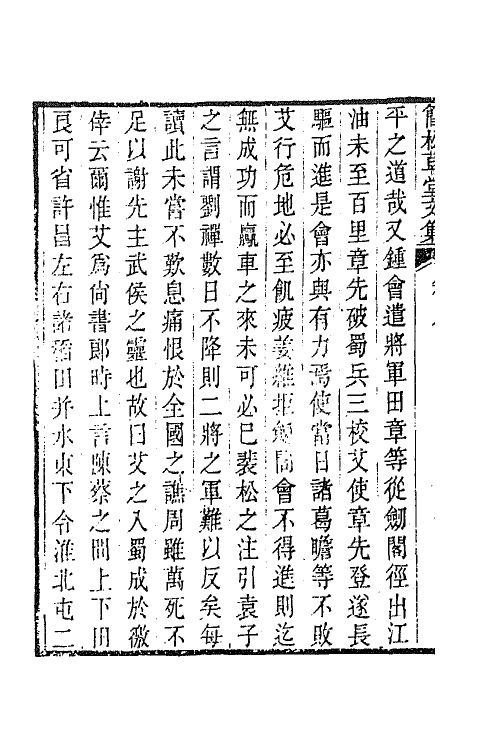 平之道哉又鍾會遣將軍田章等從劒閣徑出江
油未至百里章先破蜀兵三校艾使章先登遂長
驅而進是會亦與有力焉使當日諸葛瞻等不敗
艾行危地必至飢疲姜維拒劒閣會不得進則迄
無成功而贏車之來未可必已裴松之注引袁子
之言謂劉禪數日不降則二將之軍難以反矣每
讀此未嘗不歎息痛恨於全國之譙周雖萬死不
足以謝先主武侯之靈也故曰艾之入蜀成於徼
倖云爾惟艾為尙書郎時上言陳蔡之間上下田
良可省許昌左右諸稻田并水東下令淮北屯二